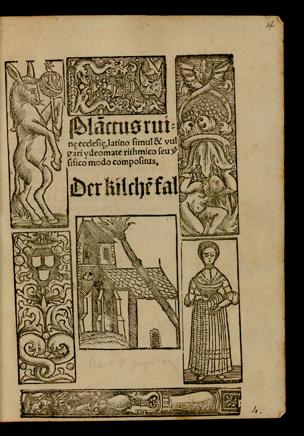 4
Plāctus rui-
nę ecclesię, latino simul & vul
gari ydeomate rithmico seu v̕
sifico modo compositus.
Der kilchē fal
4.